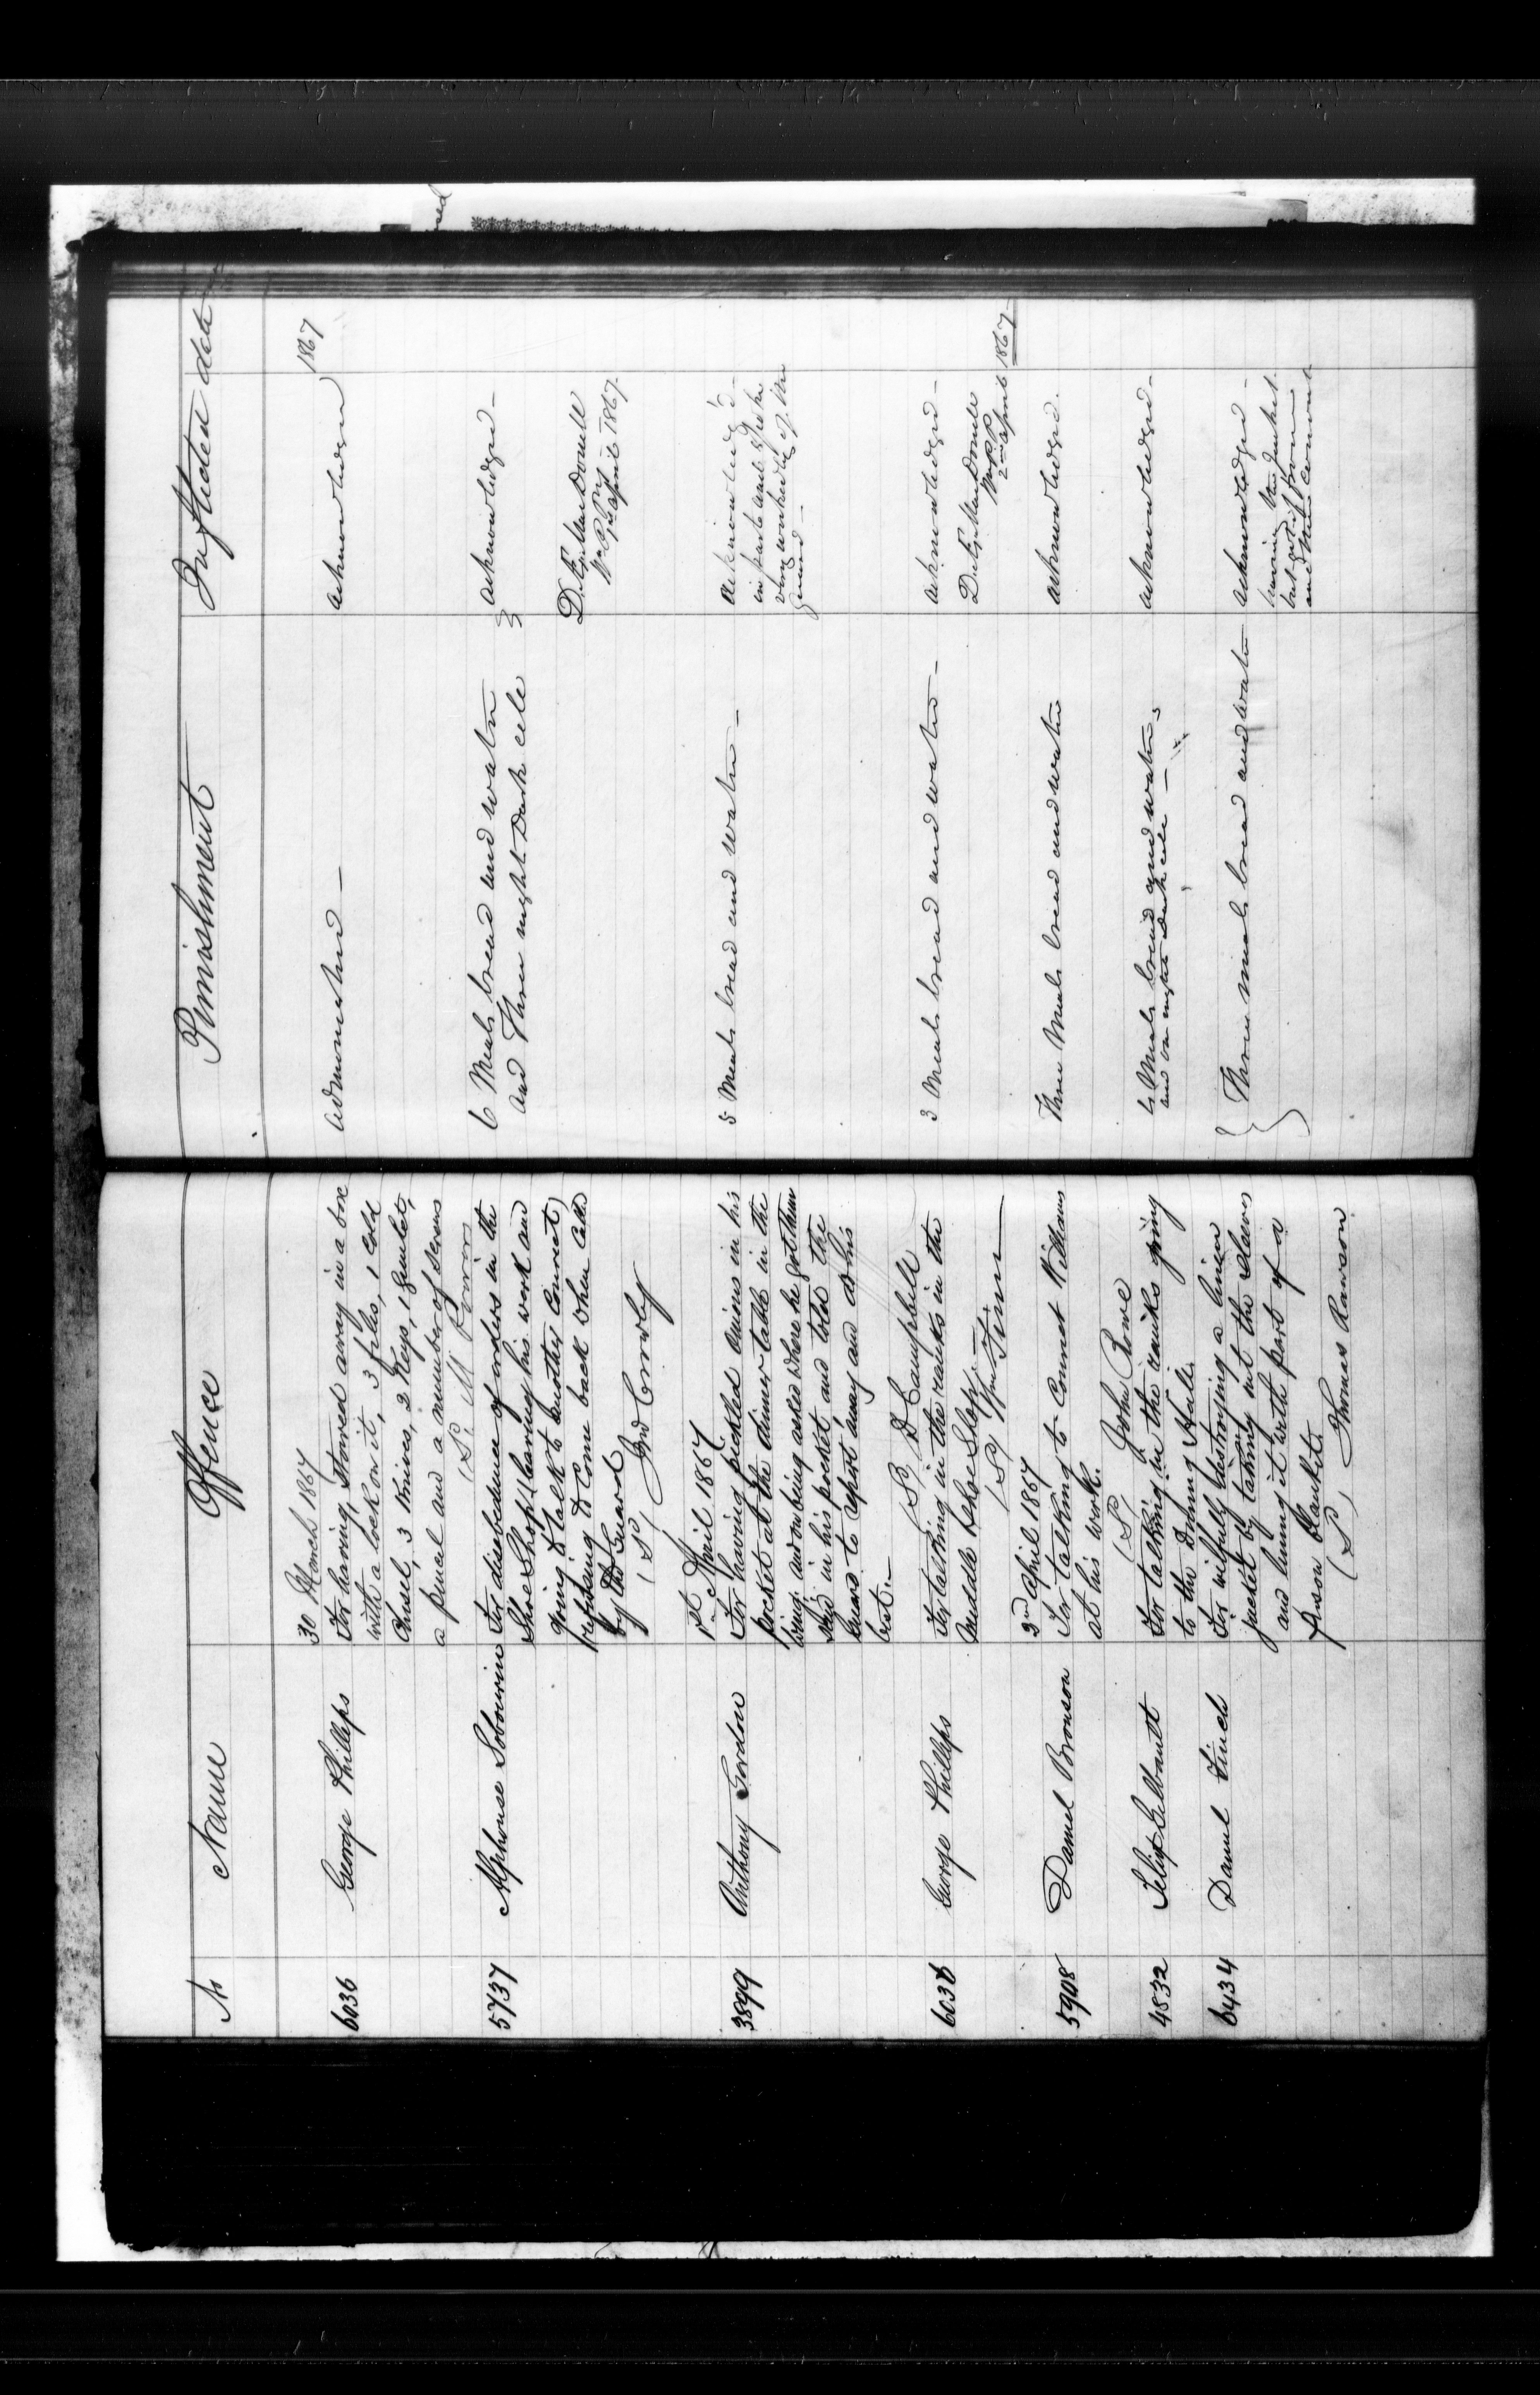 No Name Offence Punishment Inflicted date
30 March 1867 1867
6036 George Phillips For having stowed away in a box admonished — acknowledged
with a lock on it, 3 files, 1 Cold
Chisel, 3 Knives, 2 Keys, 1 Gimlet,
a pencil and a number of screws
(S)
5737 Alphonse Sobourin For disobedience of orders in the 6 Meals bread and water acknowledged —
Shoe Shop leaving his work and and Three nights Dark cell
going to talk to another Convict
refusing to Come back when Called
by the Guard
(S)
D. Æ MacDonell
W.P.P.
April 1867
1st April 1867
3899 Anthony Gordon For having pickled onions in his 5 Meals bread and water — Acknowledg'd
pocket at the dinner table in the in part
wing and on being asked where he got them
said in his pocket and told the
Guard to report away and do his
best.—
(S) D Campbell
6036 George Phillips For talking in the ranks in the 3 Meals bread and water — acknowledged —
Middle Shoe Shop.—
(S) Wm
D. Æ MacDonell
W.P.P.
2nd April 1867
2nd April 1867
5908 Daniel Bronson For talking to Convict Williams Three Meals bread and water acknowledged.
at his work.
(S) John Rowe
4832 For talking in the ranks going 4 Meals bread and water, acknowledged —
to the Dining Hall. and on nights dark cell —
6434 Daniel Finch For wilfully destroying a linen Three meals bread and water acknowledged —
jacket by taking out the sleeves having the jacket
and lining it with part of a but got it from
prison blanket. another Convict
(S) Thomas Rawson